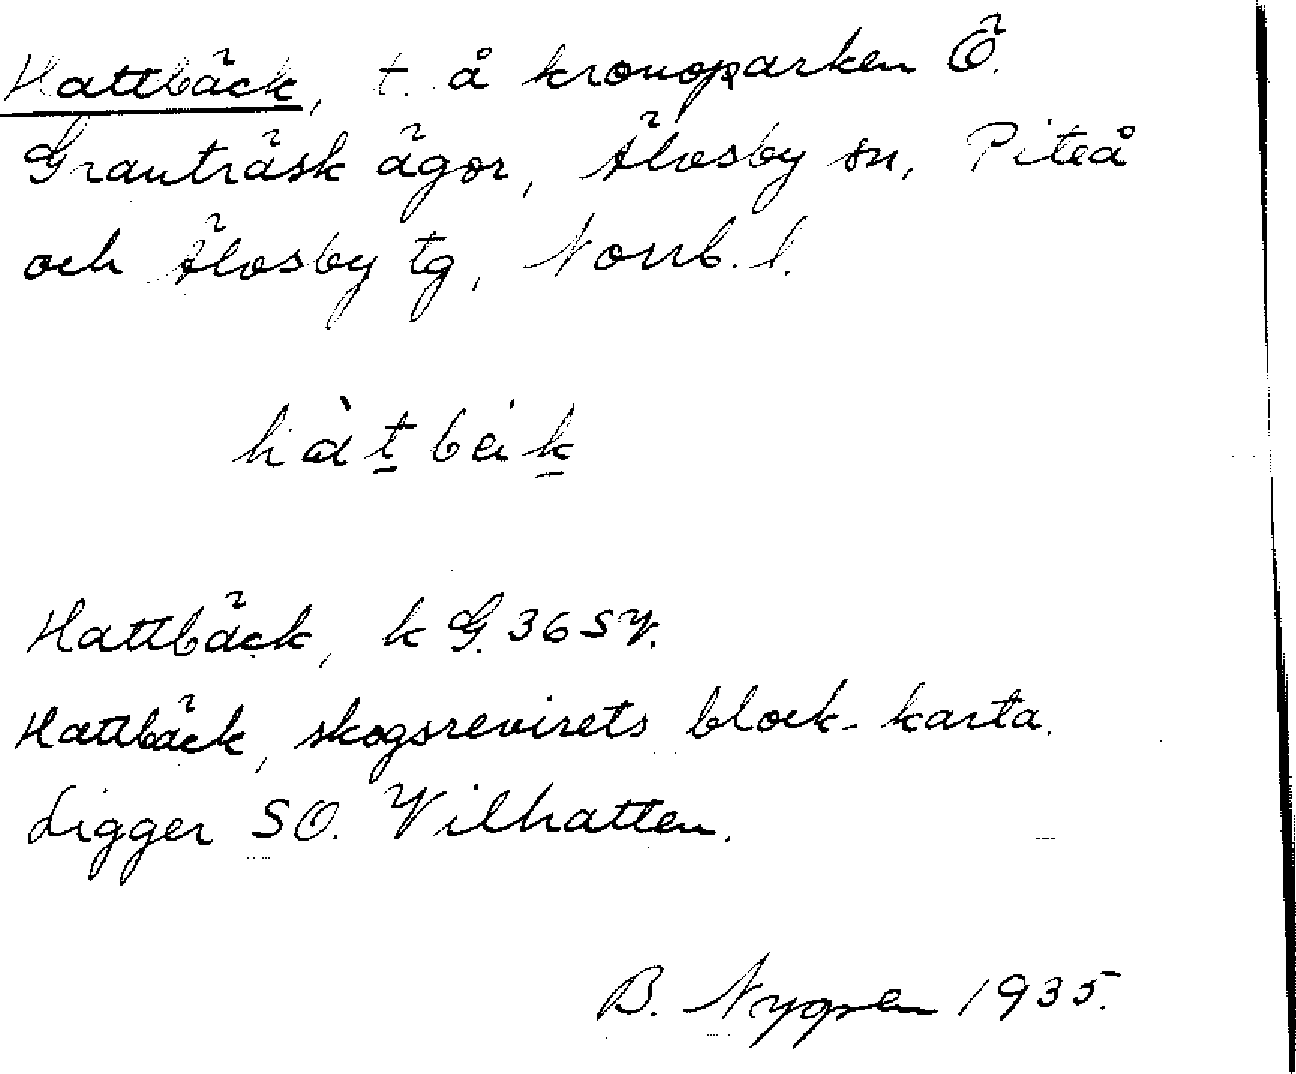 Hattbäck, t. å kronoparken Ö.
Granträsk ägor, Älvsby sn, Piteå
och Älvsby tg, Norrb. l.
hàt̲beik̲
Hattbäck, k G. 36 SV.
Hattbäck, skogsrevirets block-karta.
Ligger SO. Vilhatten.
B. Nygren 1935.